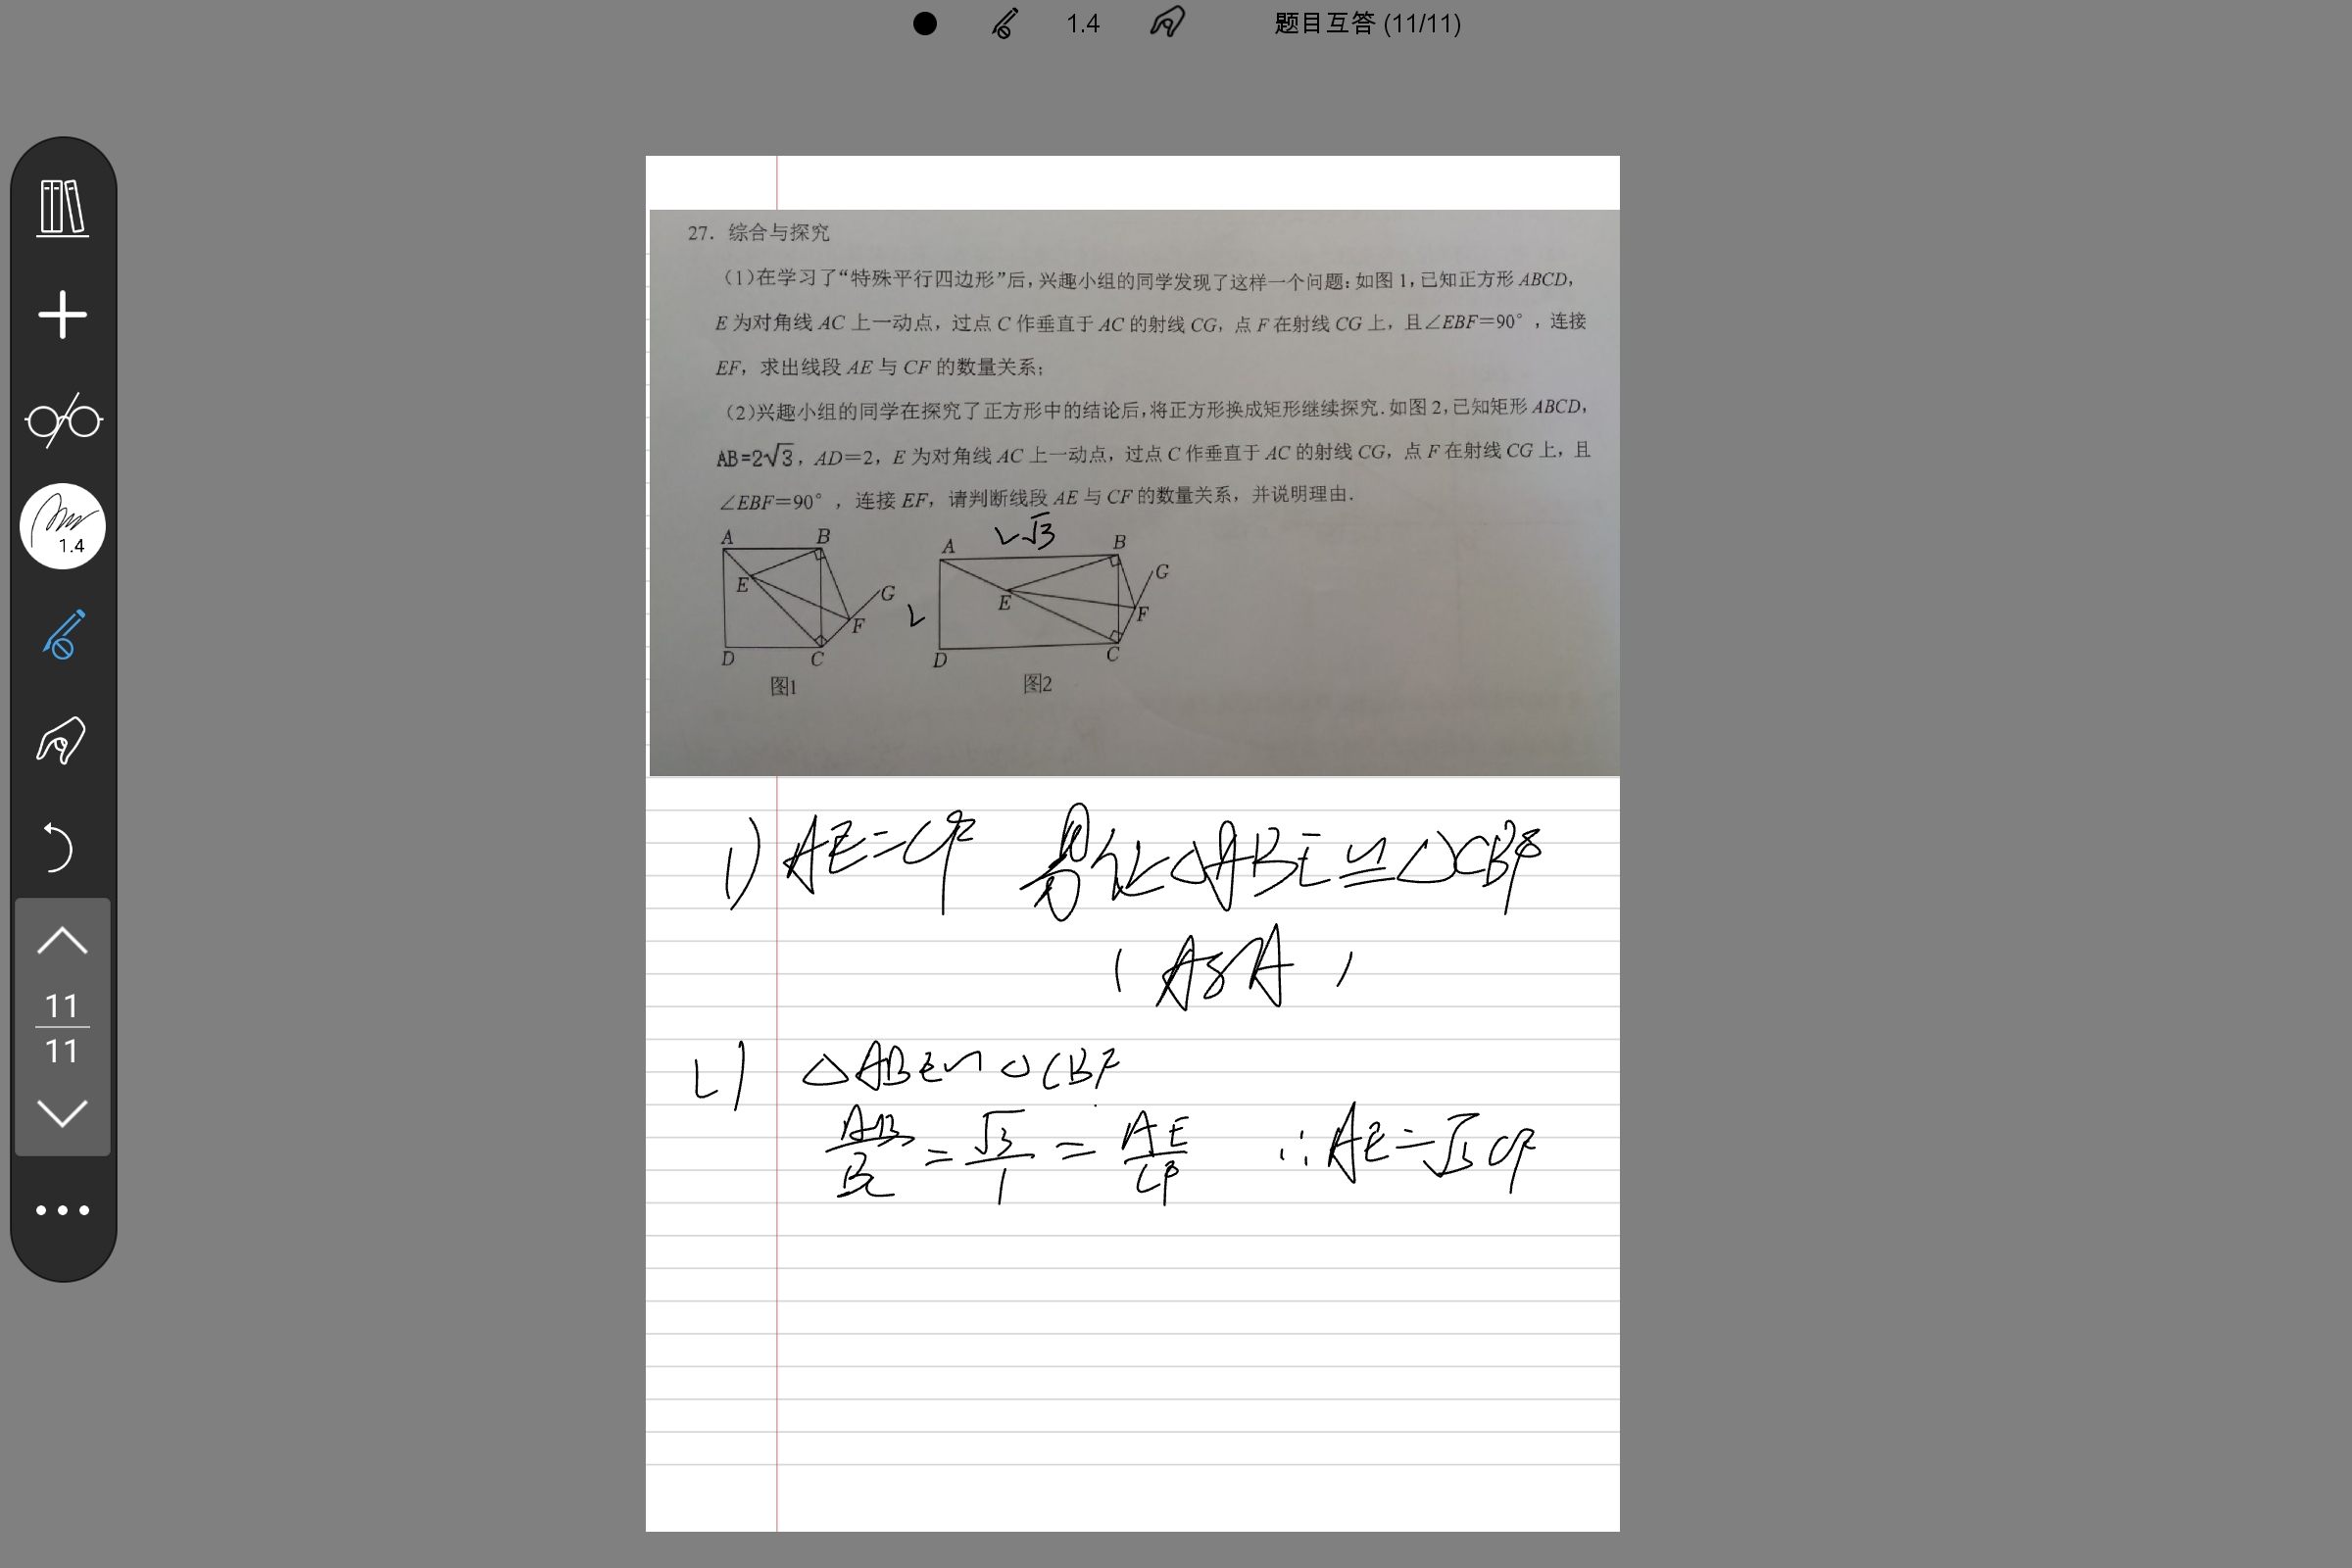 1.4 题目互答 (11/11)
1.4
11
11
27. 综合与探究
(1)在学习了“特殊平行四边形”后,兴趣小组的同学发现了这样一个问题:如图1,已知正方形ABCD,
E为对角线AC上一动点,过点C作垂直于AC的射线CG,点F在射线CG上,且∠EBF=90°,连接
EF,求出线段AE与CF的数量关系;
(2)兴趣小组的同学在探究了正方形中的结论后,将正方形换成矩形继续探究.如图2,已知矩形ABCD,
AB=2√3,AD=2,E为对角线AC上一动点,过点C作垂直于AC的射线CG,点F在射线CG上,且
∠EBF=90°,连接EF,请判断线段AE与CF的数量关系,并说明理由.
A B E G F D C
图1
2√3
2
A B G E F D C
图2
1) AE=CF 易证△ABE≌△CBF
(ASA)
2) △ABE∽△CBF
AB/BC = √3/1 = AE/CF ∴AE=√3CF